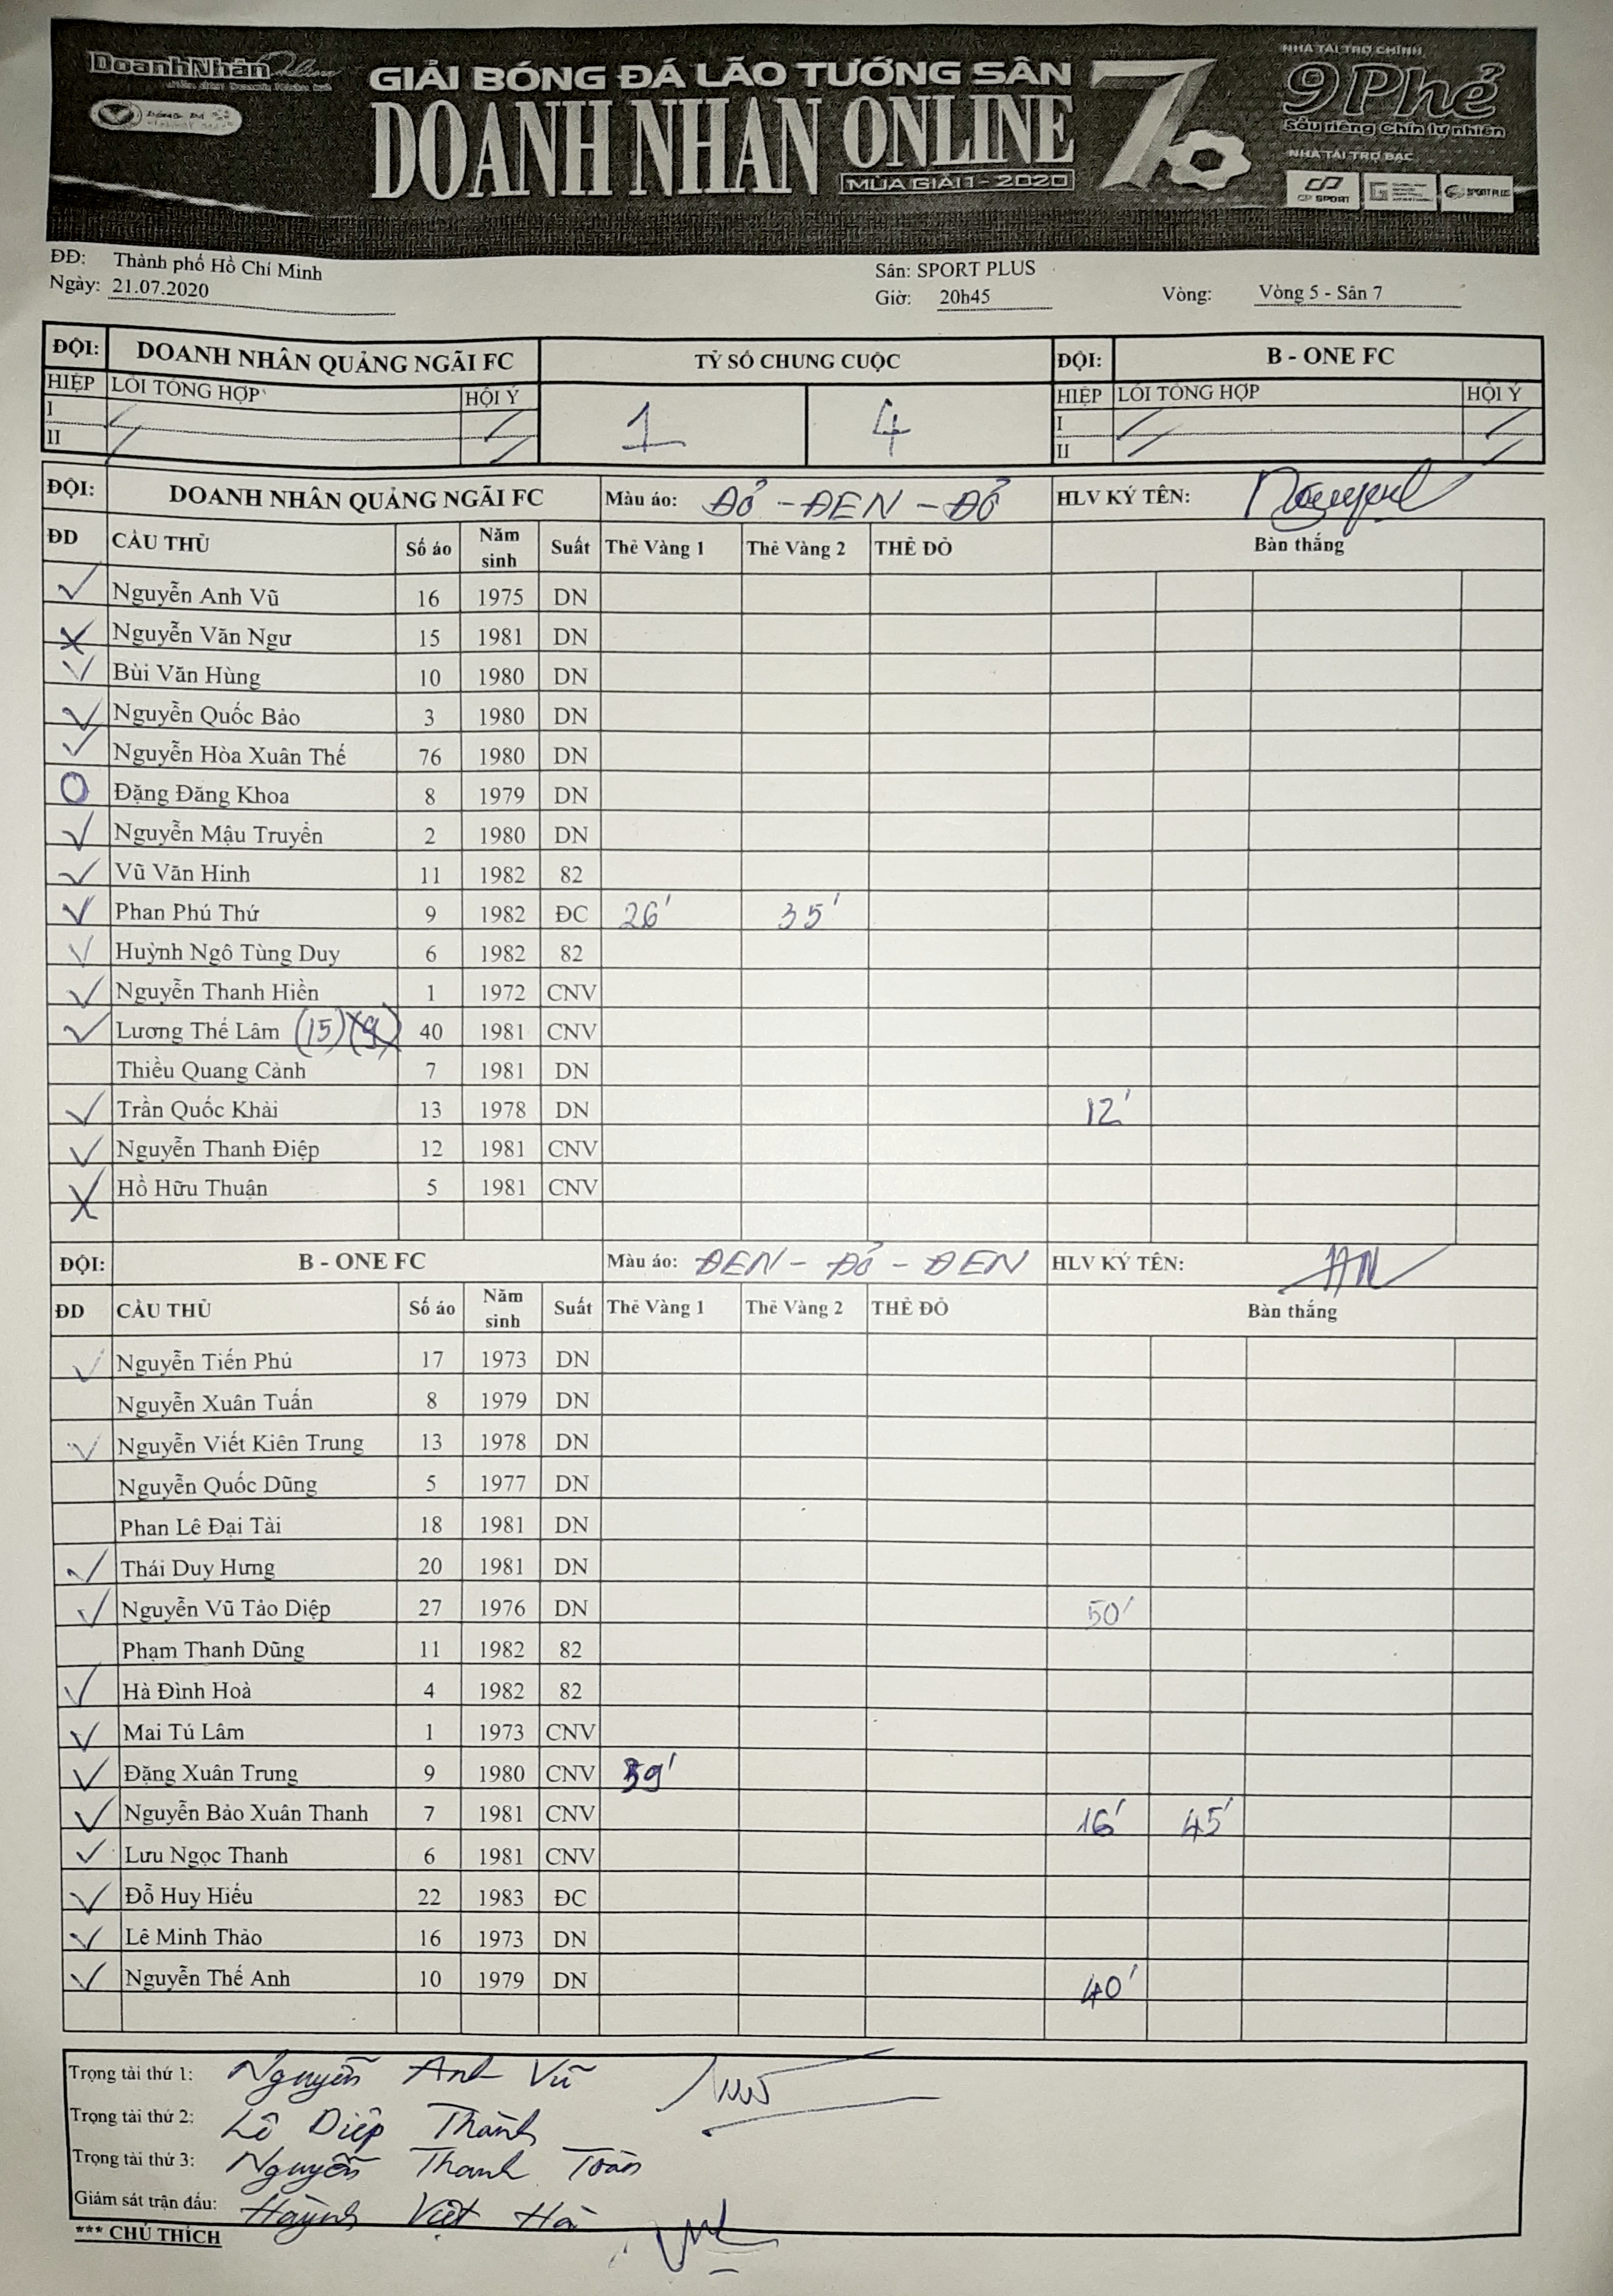 DoanhNhân Online
GIẢI BÓNG ĐÁ LÃO TƯỚNG SÂN 7
DOANH NHAN ONLINE
MÙA GIẢI 1 - 2020
NHÀ TÀI TRỢ CHÍNH
9 Phẻ
Sầu riêng Chín tự nhiên
NHÀ TÀI TRỢ BẠC
CP SPORT
SPORT PLUS
ĐĐ: Thành phố Hồ Chí Minh Sân: SPORT PLUS
Ngày: 21.07.2020 Giờ: 20h45 Vòng: Vòng 5 - Sân 7
ĐỘI: DOANH NHÂN QUẢNG NGÃI FC TỶ SỐ CHUNG CUỘC ĐỘI: B - ONE FC
HIỆP LỖI TỔNG HỢP HỘI Ý 1 4 HIỆP LỖI TỔNG HỢP HỘI Ý
I I
II II
ĐỘI: DOANH NHÂN QUẢNG NGÃI FC Màu áo: ĐỎ - ĐEN - ĐỎ HLV KÝ TÊN:
ĐD CẦU THỦ Số áo Năm sinh Suất Thẻ Vàng 1 Thẻ Vàng 2 THẺ ĐỎ Bàn thắng
Nguyễn Anh Vũ 16 1975 DN
Nguyễn Văn Ngư 15 1981 DN
Bùi Văn Hùng 10 1980 DN
Nguyễn Quốc Bảo 3 1980 DN
Nguyễn Hòa Xuân Thế 76 1980 DN
Đặng Đăng Khoa 8 1979 DN
Nguyễn Mậu Truyền 2 1980 DN
Vũ Văn Hinh 11 1982 82
Phan Phú Thứ 9 1982 ĐC 26' 35'
Huỳnh Ngô Tùng Duy 6 1982 82
Nguyễn Thanh Hiền 1 1972 CNV
Lương Thế Lâm (15) (9) 40 1981 CNV
Thiều Quang Cảnh 7 1981 DN
Trần Quốc Khải 13 1978 DN 12'
Nguyễn Thanh Điệp 12 1981 CNV
Hồ Hữu Thuận 5 1981 CNV
ĐỘI: B - ONE FC Màu áo: ĐEN - ĐỎ - ĐEN HLV KÝ TÊN:
ĐD CẦU THỦ Số áo Năm sinh Suất Thẻ Vàng 1 Thẻ Vàng 2 THẺ ĐỎ Bàn thắng
Nguyễn Tiến Phú 17 1973 DN
Nguyễn Xuân Tuấn 8 1979 DN
Nguyễn Viết Kiên Trung 13 1978 DN
Nguyễn Quốc Dũng 5 1977 DN
Phan Lê Đại Tài 18 1981 DN
Thái Duy Hưng 20 1981 DN
Nguyễn Vũ Tảo Diệp 27 1976 DN 50'
Phạm Thanh Dũng 11 1982 82
Hà Đình Hoà 4 1982 82
Mai Tú Lâm 1 1973 CNV
Đặng Xuân Trung 9 1980 CNV 39'
Nguyễn Bảo Xuân Thanh 7 1981 CNV 16' 45'
Lưu Ngọc Thanh 6 1981 CNV
Đỗ Huy Hiếu 22 1983 ĐC
Lê Minh Thảo 16 1973 DN
Nguyễn Thế Anh 10 1979 DN 40'
Trọng tài thứ 1: Nguyễn Anh Vũ
Trọng tài thứ 2: Lê Diệp Thành
Trọng tài thứ 3: Nguyễn Thanh Toàn
Giám sát trận đấu: Huỳnh Việt Hà
*** CHÚ THÍCH